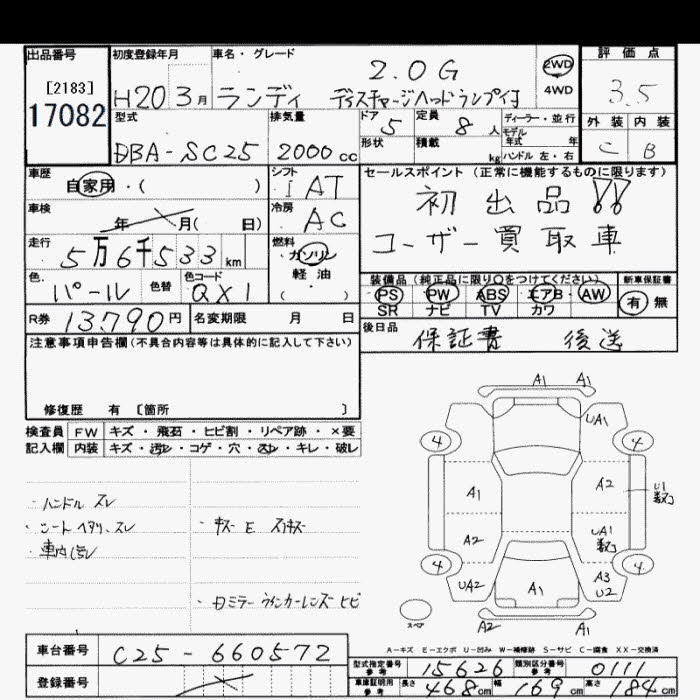 出品番号 初度登録年月 車名・グレード 評価点
[2183] 2.0G 2WD
17082 H20 3月 ランディ ディスチャージヘッドランプイヨ 4WD 3.5
型式 排気量 ドア 5 定員 8人 ディーラー・並行 外装 内装
DBA-SC25 2000cc 形状 積載 kg モデル年式 年 C B
ハンドル 左・右
車歴 シフト セールスポイント (正常に機能するものに限ります)
自家用・( ) I AT 初出品!!
車検 年 月( 日) 冷房 AC ユーザー買取車
走行 5万6千533km 燃料 ガソリン
軽油
( )
色 パール 色替 色コード QX1
装備品(純正品に限り○をつけてください) 新車保証書
PS PW ABS エアB AW 有 無
SR ナビ TV カワ
R券 13,790円 名変期限 月 日 後日品 保証書 後送
注意事項申告欄(不具合内容等は具体的に記入して下さい)
修復歴 有 〔箇所 〕
検査員 FW キズ・飛石・ヒビ割・リペア跡・×要
記入欄 内装 キズ・汚レ・コゲ・穴・スレ・キレ・破レ
・ハンドル スレ
・シート ヘタリ、スレ ・キズ E スリキズ
・車内汚レ
・ミラー ウィンカーレンズ ヒビ
A1 A1
UA1
4 4
A1 A2 U1
A2 UA1
4 4
UA2 A1 A3
U2
スペア A2 A1
A-キズ E-エクボ U-凹み W-補修跡 S-サビ C-腐食 XX-交換済
車台番号 C25-660572
型式指定番号 参考 15626 類別区分番号 参考 0111
登録番号
車庫証明用 参考 長さ 468cm 幅 169cm 高さ 184cm